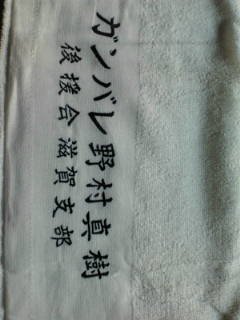 ガンバレ野村真樹
後援会滋賀支部